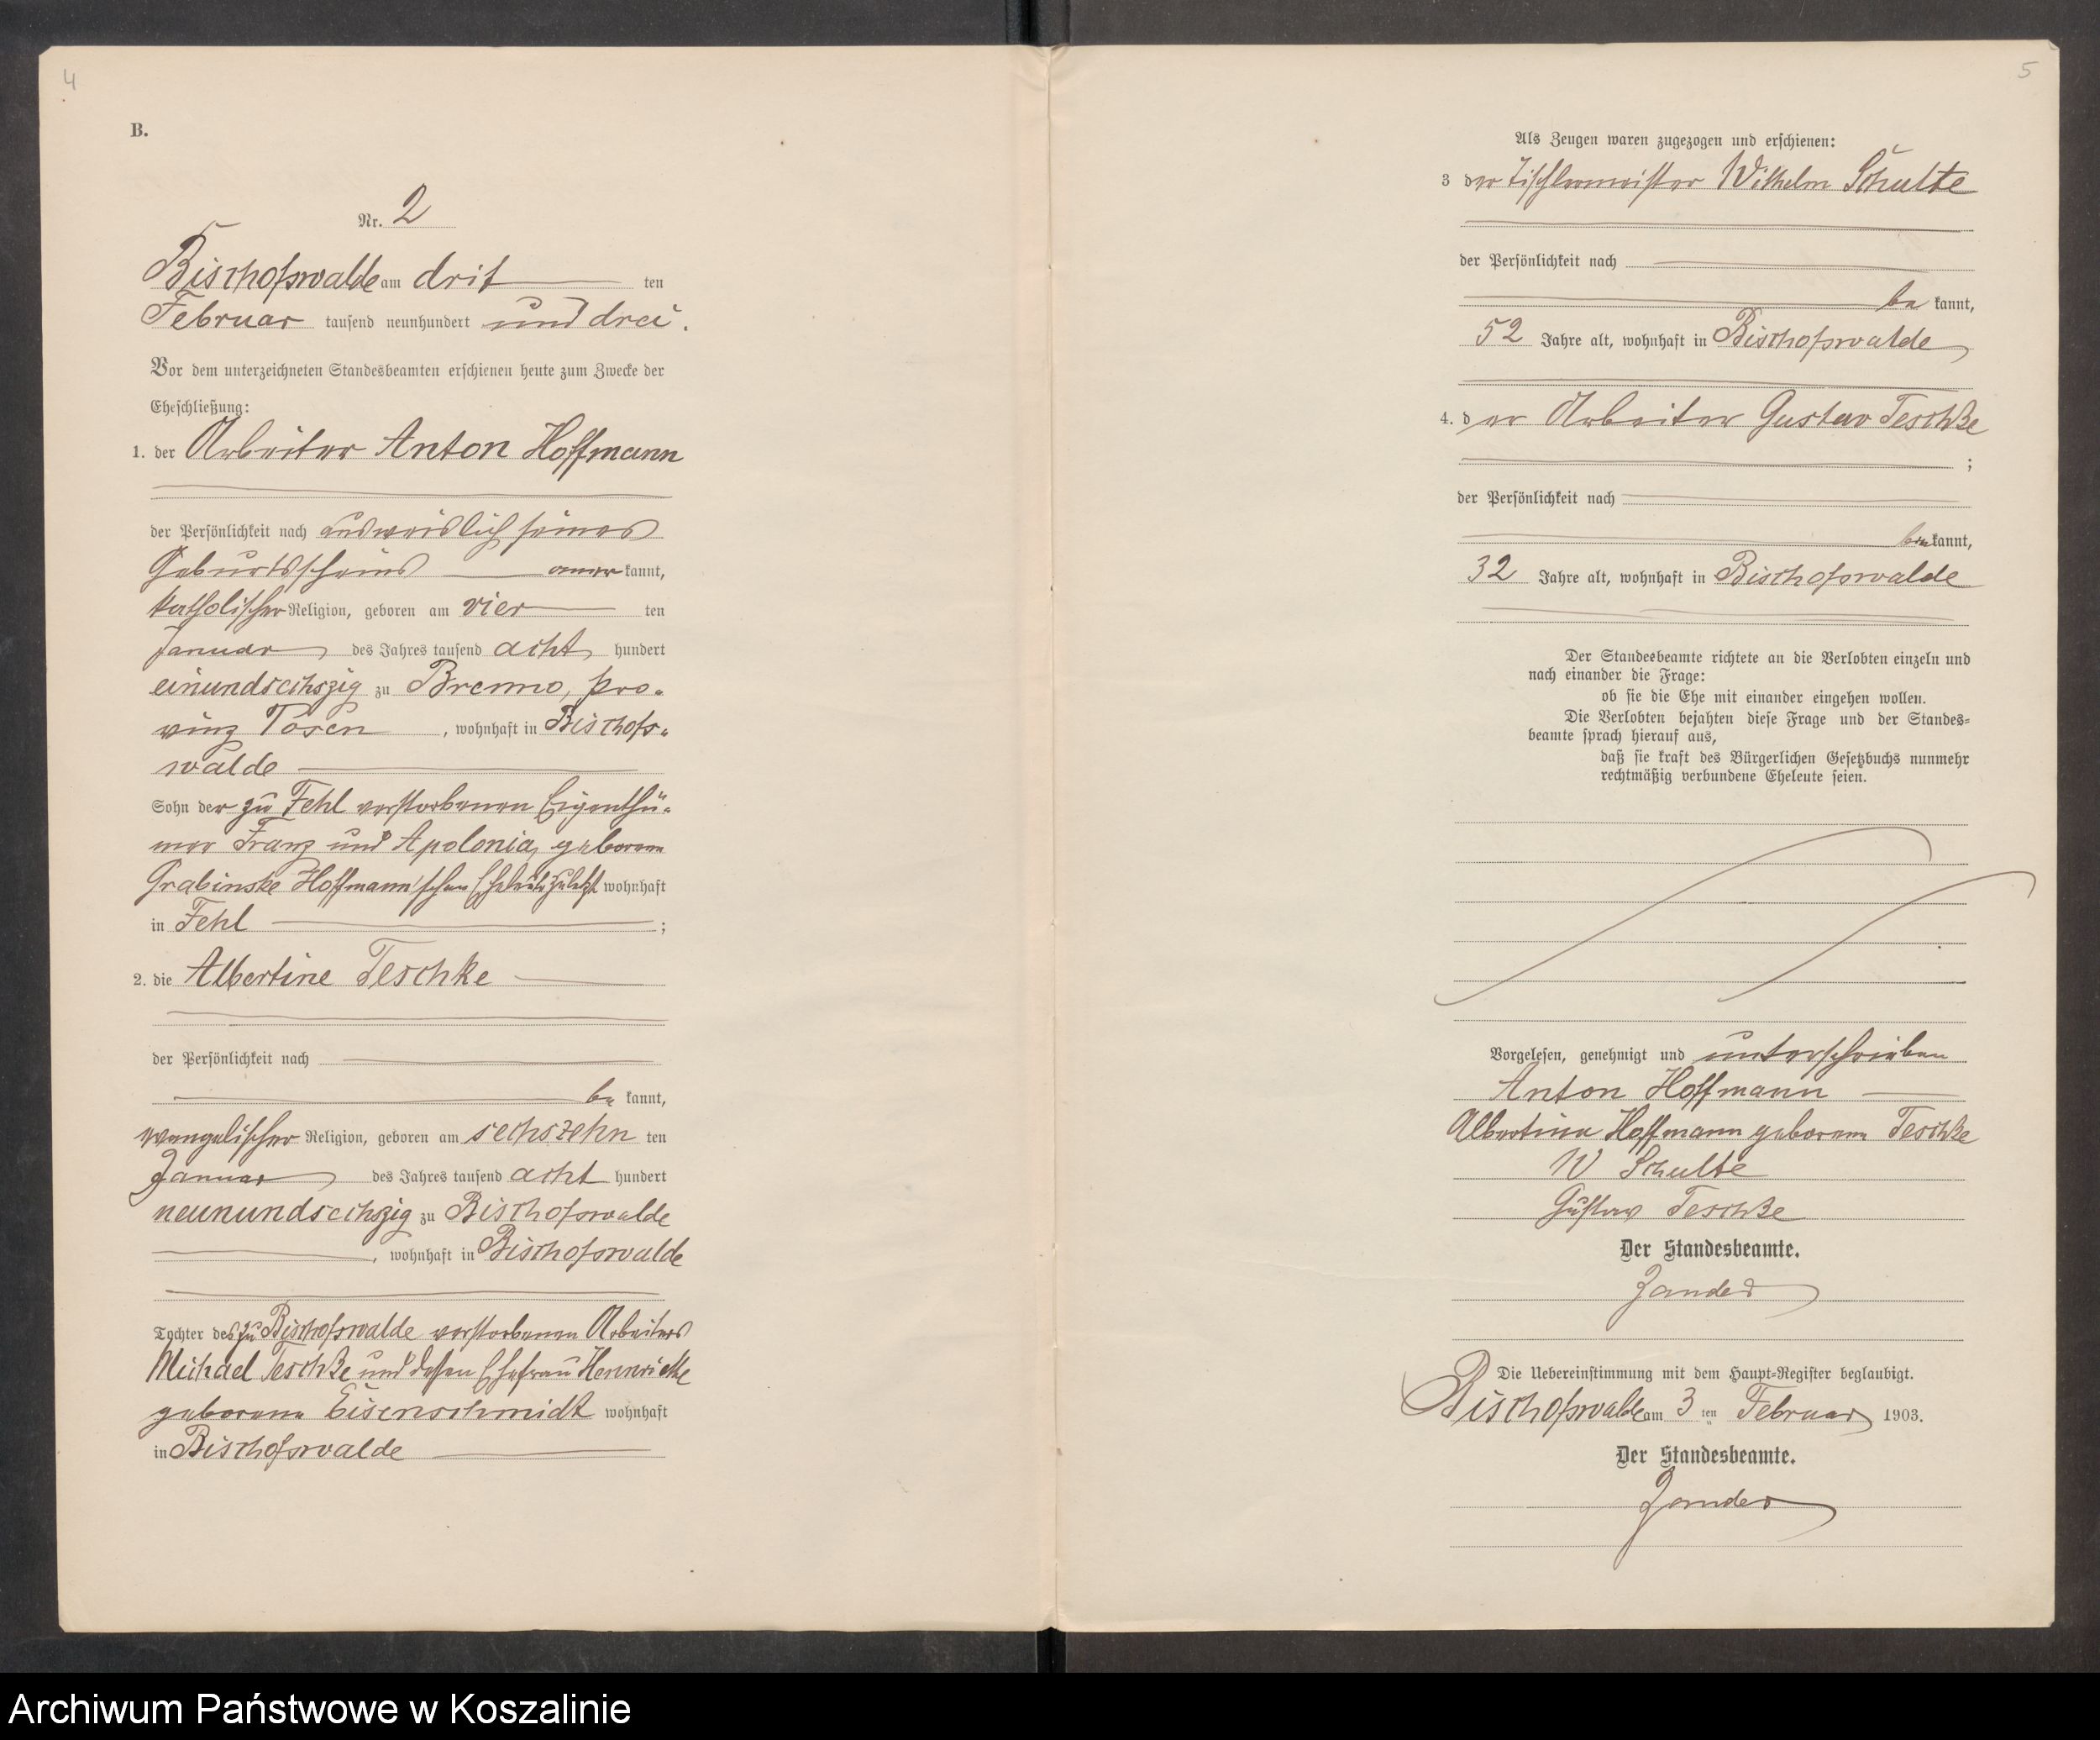 4
B.
Nr. 2
Bischofswalde am drit ten
Februar tausend neunhundert und drei.
Vor dem unterzeichneten Standesbeamten erschienen heute zum Zwecke der
Eheschließung:
1. der Arbeiter Anton Hoffmann
der Persönlichkeit nach ausweislich seines
Geburtsscheins aner kannt,
katholischer Religion, geboren am vier ten
Januar des Jahres tausend acht hundert
einundsechszig zu Brenno, Pro-
vinz Posen, wohnhaft in Bischofs-
walde
Sohn der zu Fehl verstorbenen Eigenthü-
mer Franz und Apolonia, geborene
Grabinske Hoffmann'schen Eheleute zuletzt wohnhaft
in Fehl ;
2. die Albertine Teschke
der Persönlichkeit nach
be kannt,
evangelischer Religion, geboren am sechszehn ten
Januar des Jahres tausend acht hundert
neunundsechszig zu Bischofswalde
, wohnhaft in Bischofswalde
Tochter des zu Bischofswalde verstorbenen Arbeiters
Michael Teschke und dessen Ehefrau
geborene Eisenschmidt wohnhaft
in Bischofswalde
5
Als Zeugen waren zugezogen und erschienen:
3 der Tischlermeister Wilhelm Schulte
der Persönlichkeit nach
be kannt,
52 Jahre alt, wohnhaft in Bischofswalde
4. der Arbeiter Gustav Teschke
;
der Persönlichkeit nach
be kannt,
32 Jahre alt, wohnhaft in Bischofswalde
Der Standesbeamte richtete an die Verlobten einzeln und
nach einander die Frage:
ob sie die Ehe mit einander eingehen wollen.
Die Verlobten bejahten diese Frage und der Standes-
beamte sprach hierauf aus,
daß sie kraft des Bürgerlichen Gesetzbuchs nunmehr
rechtmäßig verbundene Eheleute seien.
Vorgelesen, genehmigt und unterschrieben
Anton Hoffmann
Albertine Hoffmann geborene Teschke
W Schulte
Gustav Teschke
Der Standesbeamte.
Zander
Die Uebereinstimmung mit dem Haupt-Register beglaubigt.
Bischofswalde am 3 ten Februar 1903.
Der Standesbeamte.
Zander
Archiwum Państwowe w Koszalinie